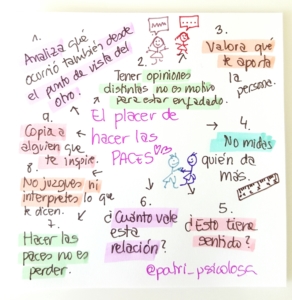 1.
Analiza qué
ocurrió también desde
el punto de vista del
otro.
2.
Tener opiniones
distintas no es motivo
para estar enfadado.
3.
Valora qué
te aporta
la persona.
El placer de
hacer las
PACES
4.
No midas
quién da
más.
5.
¿Esto tiene
sentido?
6.
¿Cuánto vale
esta
relación?
7.
Hacer las
paces no es
perder.
8.
No juzgues ni
interpretes lo que
te dicen.
9.
Copia a
alguien que
te inspire.
@patri_psicologa